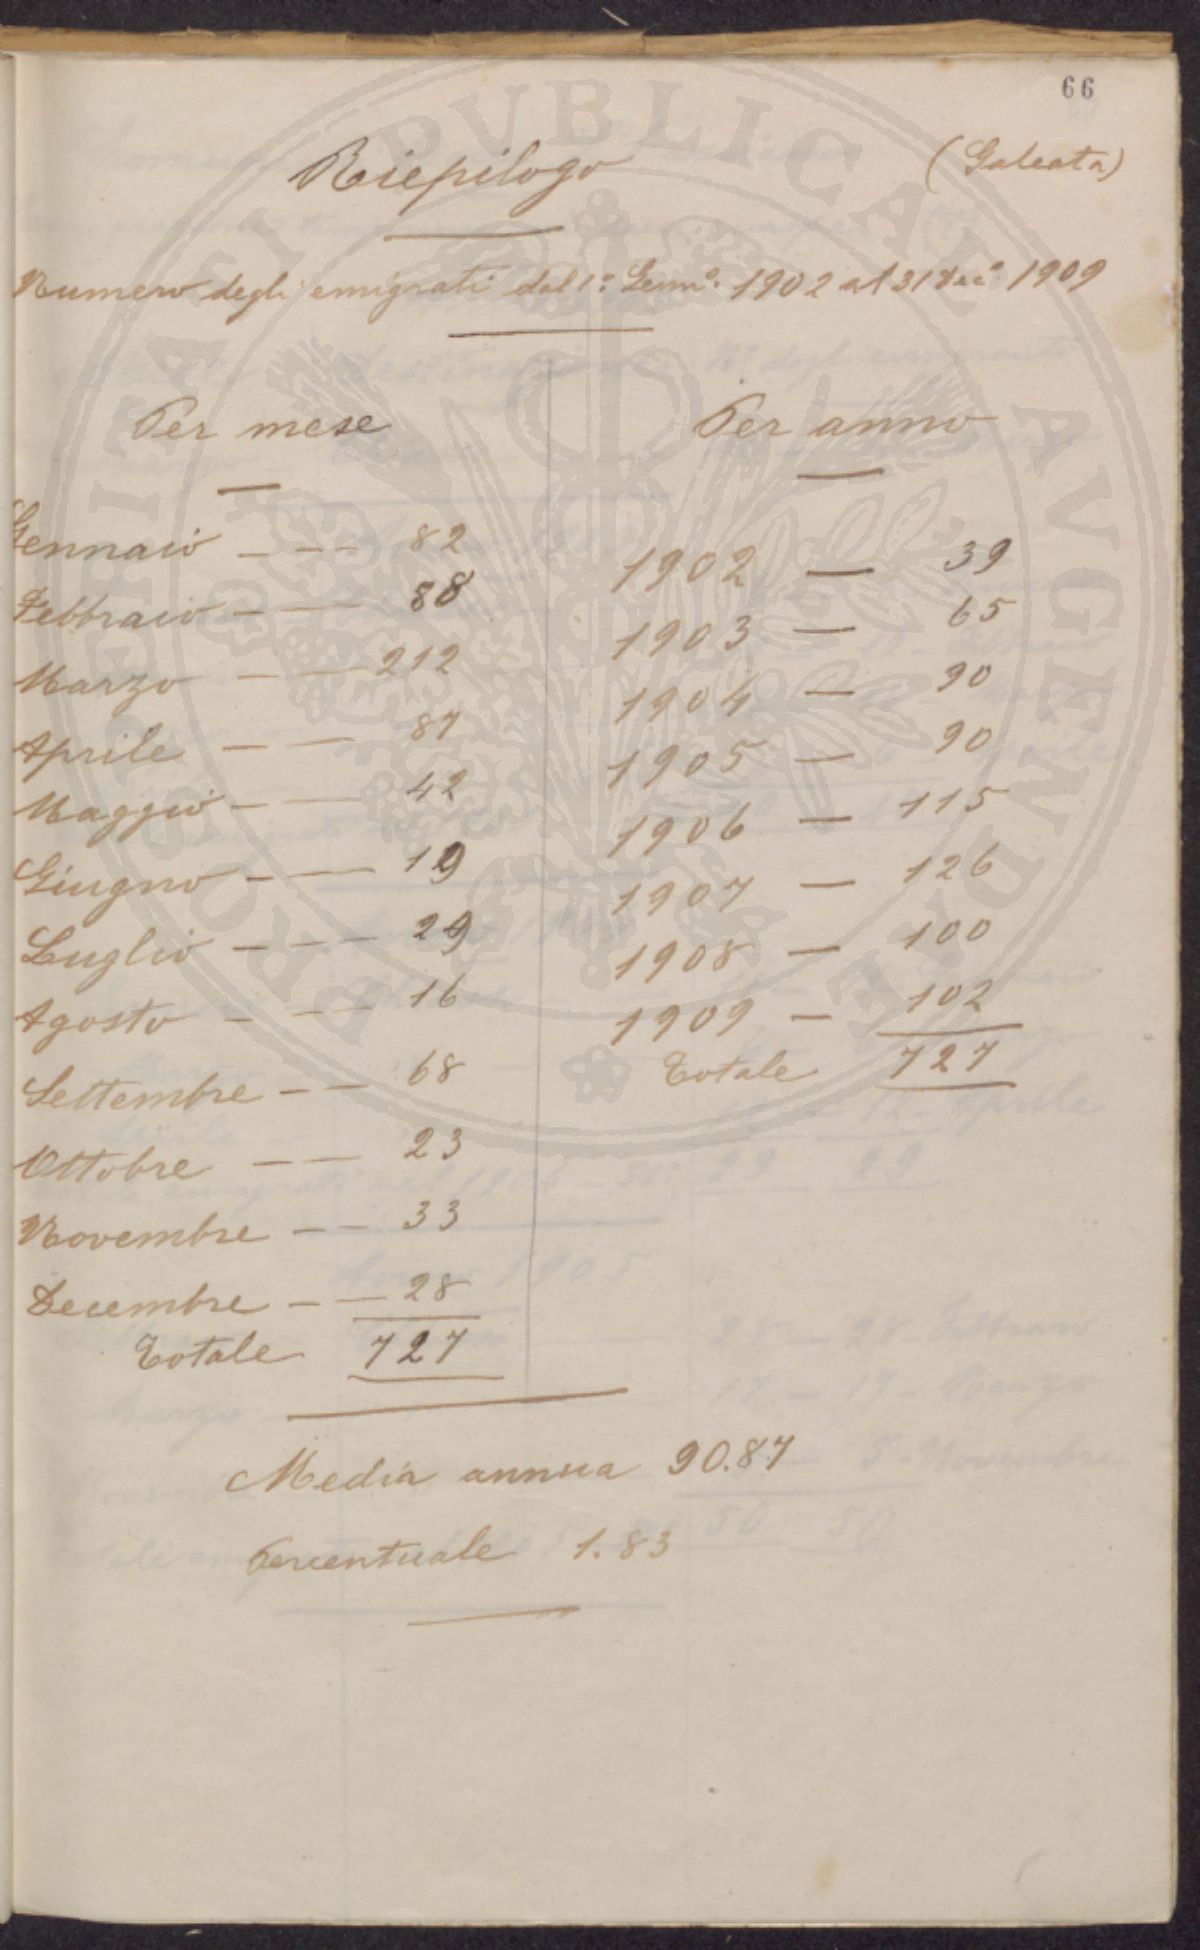 66
Riepilogo
(Galeata)
Numero degli emigrati dal 1º Genn.º 1902 al 31 Dec.º 1909
Per mese
Gennaio - - - 82
Febbraio - - 88
Marzo - - 212
Aprile - - 87
Maggio - - 42
Giugno - - 19
Luglio - - - 29
Agosto - - - 16
Settembre - - 68
Ottobre - - 23
Novembre - - 33
Decembre - - 28
Totale 727
Per anno
1902 - 39
1903 - 65
1904 - 90
1905 - 90
1906 - 115
1907 - 126
1908 - 100
1909 - 102
Totale 727
Media annua 90.87
Percentuale 1.83
PROSPERITASI PUBLICAE AUGENDAE